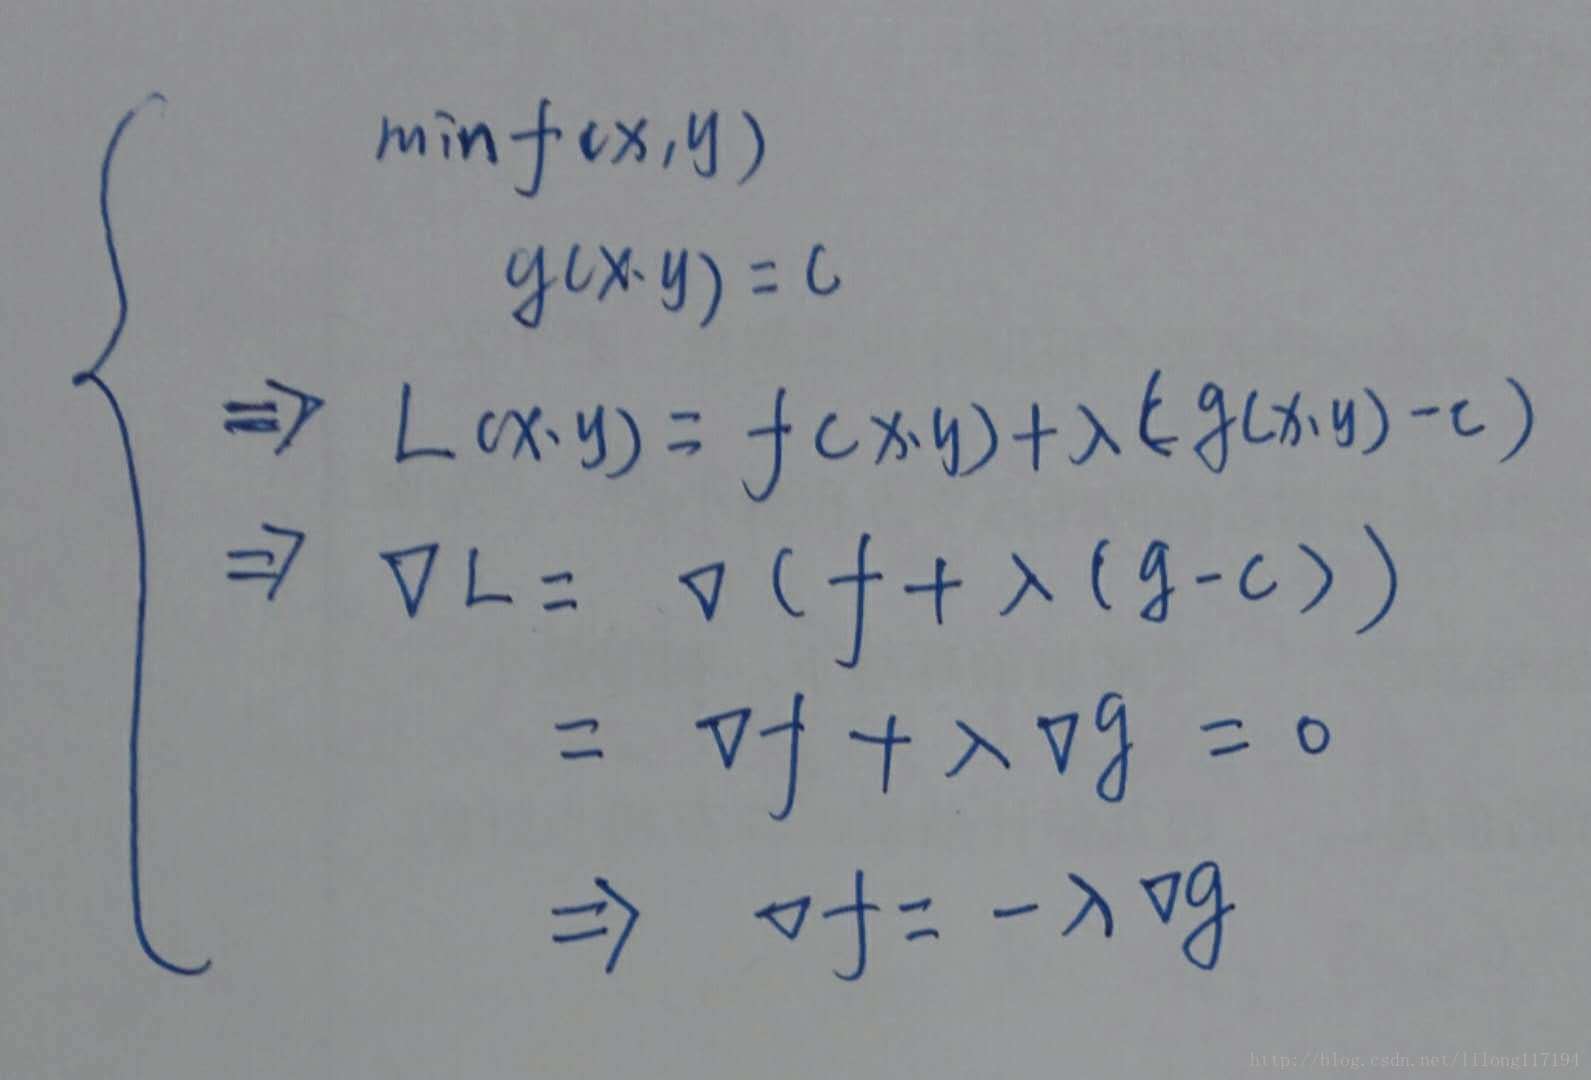 min f(x,y)
g(x.y) = c
⇒ L(x.y) = f(x.y) + λ(g(x.y) - c)
⇒ ∇L = ∇(f + λ(g - c))
= ∇f + λ∇g = 0
⇒ ∇f = - λ∇g
http://blog.csdn.net/lilong117194